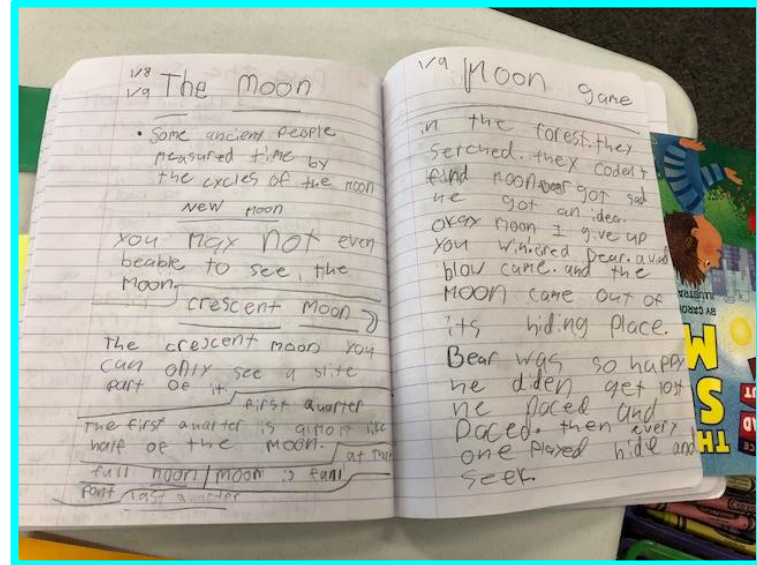 1/8
1/9 The Moon
• Some ancient people
measured time by
the cycles of the moon
New moon
You may not even
beable to see, the
Moon.
crescent Moon
The crescent moon you
can only see a slite
part of it.
first quarter
The first quarter is almost like
half of the moon.
full moon / moon is full
at that
pont last quarter
1/9 Moon game
in the forest. they
serched. they codent
find moon. bear got sad
he got an idea.
okay moon I give up
you
bear. a wind
blow came. and the
Moon came out of
its hiding place.
Bear was so happy
he diden get lost
he paced and
paced. then every
one played hide and
seek.
BY CAROL
ILLUSTRA